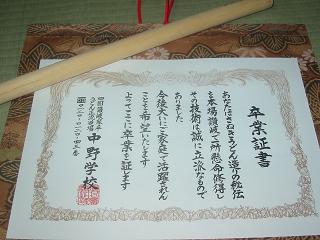 卒業証書
あなたはさぬきうどん造りの秘伝
を本場讃岐で一所懸命修得し
その技術は誠に立派なもので
ありました
今後大いにご家庭で活躍されん
ことを希望いたします
よってここに卒業を証します
中野学校